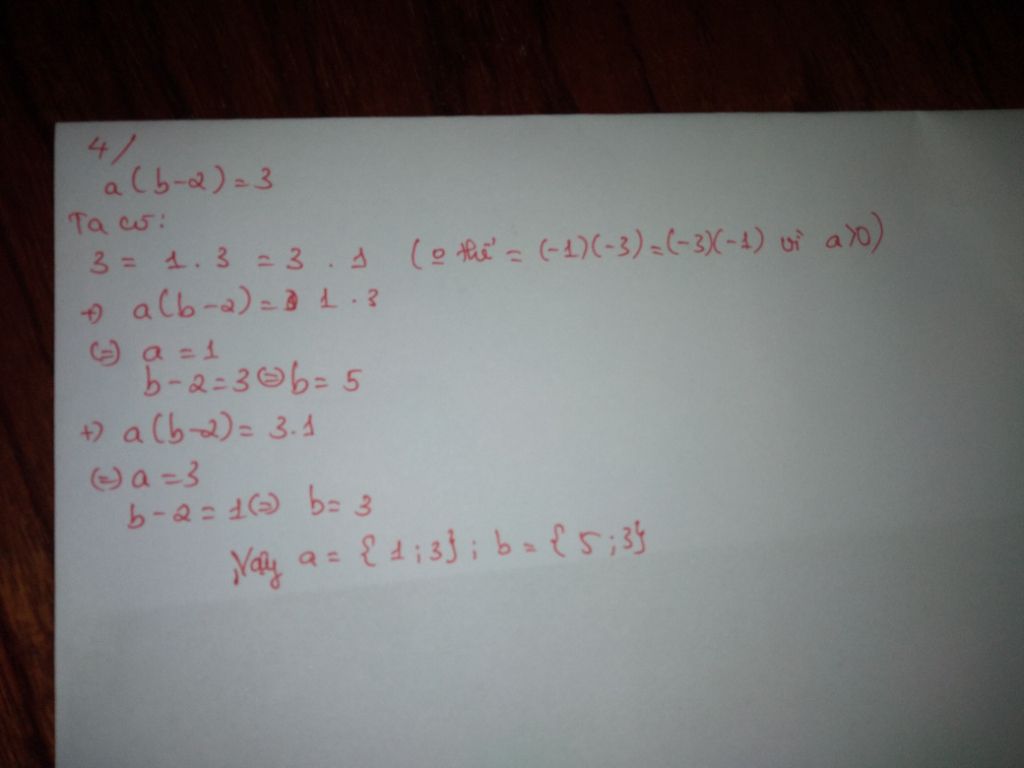 4/
a(b-2)=3
Ta có:
3 = 1.3 = 3.1 (o thể = (-1)(-3)=(-3)(-1) vì a>0)
+) a(b-2)= 1.3
(=) a=1
b-2=3(=)b=5
+) a(b-2)=3.1
(=) a=3
b-2=1(=) b=3
Vậy a={1;3}; b={5;3}